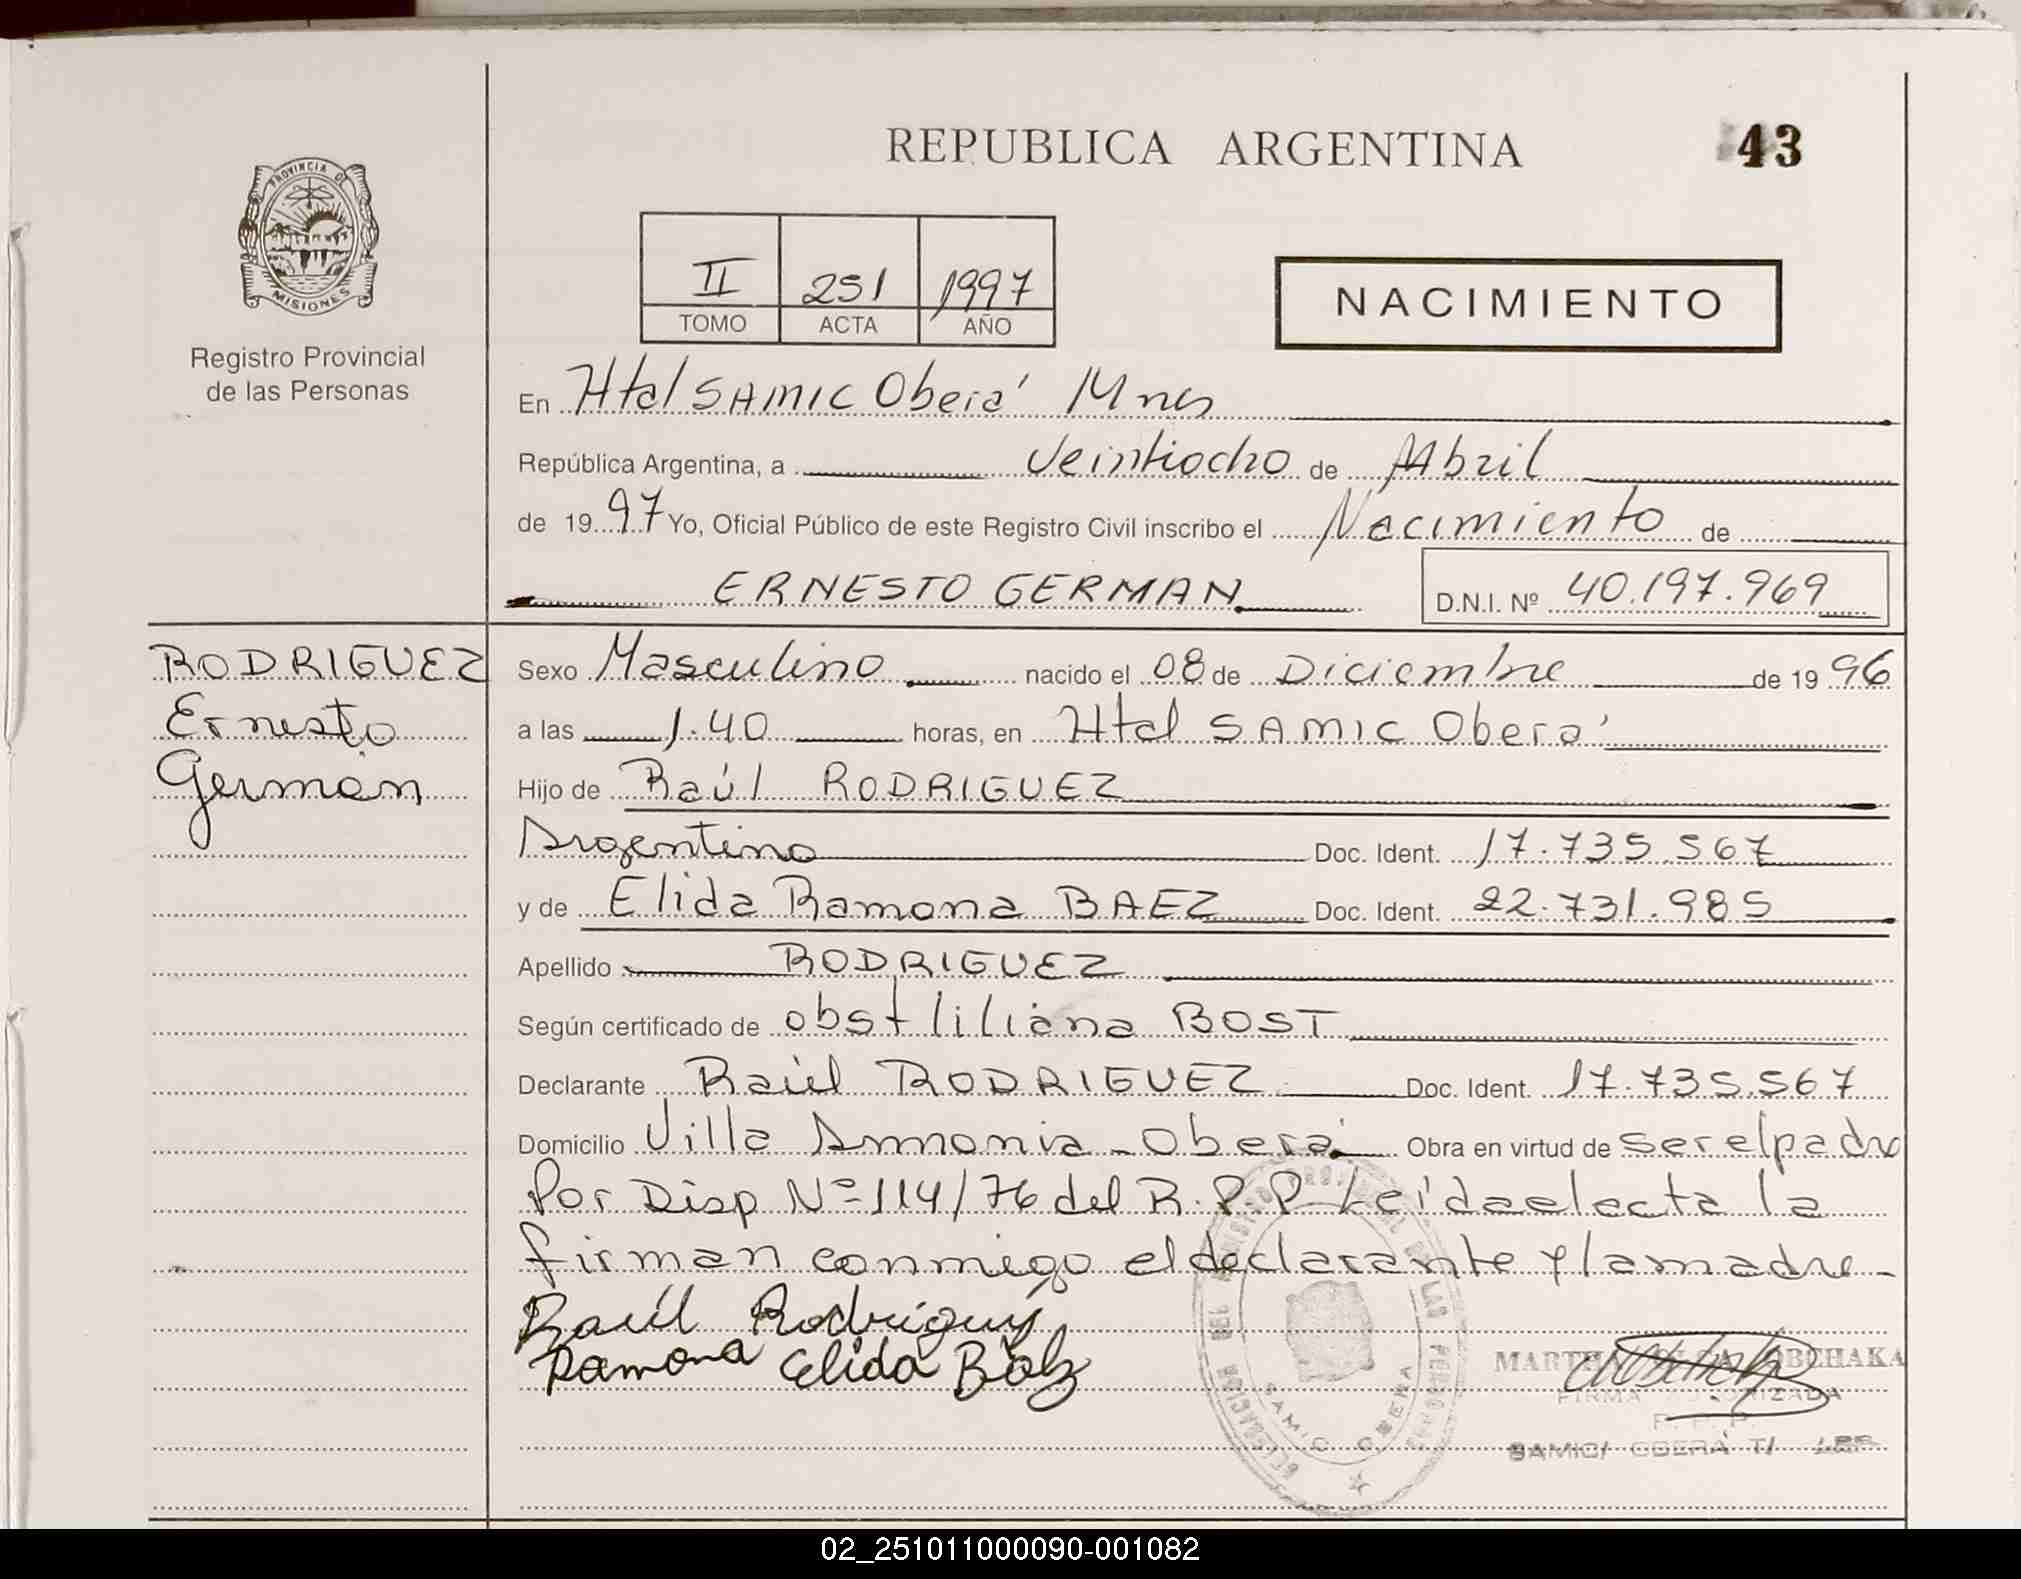 REPUBLICA ARGENTINA
43
PROVINCIA DE
MISIONES
Registro Provincial
de las Personas
II 251 1997
TOMO ACTA AÑO
NACIMIENTO
En Htal SAMIC Oberá Mnes
República Argentina, a Veintiocho de Abril
de 1997 Yo, Oficial Público de este Registro Civil inscribo el Nacimiento de
ERNESTO GERMAN D.N.I. Nº 40.197.969
RODRIGUEZ
Ernesto
Germán
Sexo Masculino nacido el 08 de Diciembre de 1996
a las 1.40 horas, en Htal SAMIC Oberá
Hijo de Raúl RODRIGUEZ
Argentino Doc. Ident. 17.735.567
y de Elida Ramona BAEZ Doc. Ident. 22.731.985
Apellido RODRIGUEZ
Según certificado de obst liliana BOST
Declarante Raúl RODRIGUEZ Doc. Ident. 17.735.567
Domicilio Villa Armonia - Oberá Obra en virtud de ser el padre
Por Disp Nº 114/76 del R.P.P Leída el acta la
firman conmigo el declarante y la madre -
Raúl Rodriguez
Ramona Elida Baez
DELEGACION DEL REGISTRO PROVINCIAL DE LAS PERSONAS
SAMIC OBERA
MARTHA
FIRMA AUTORIZADA
R. P. P.
SAMIC OBERÁ
02_251011000090-001082